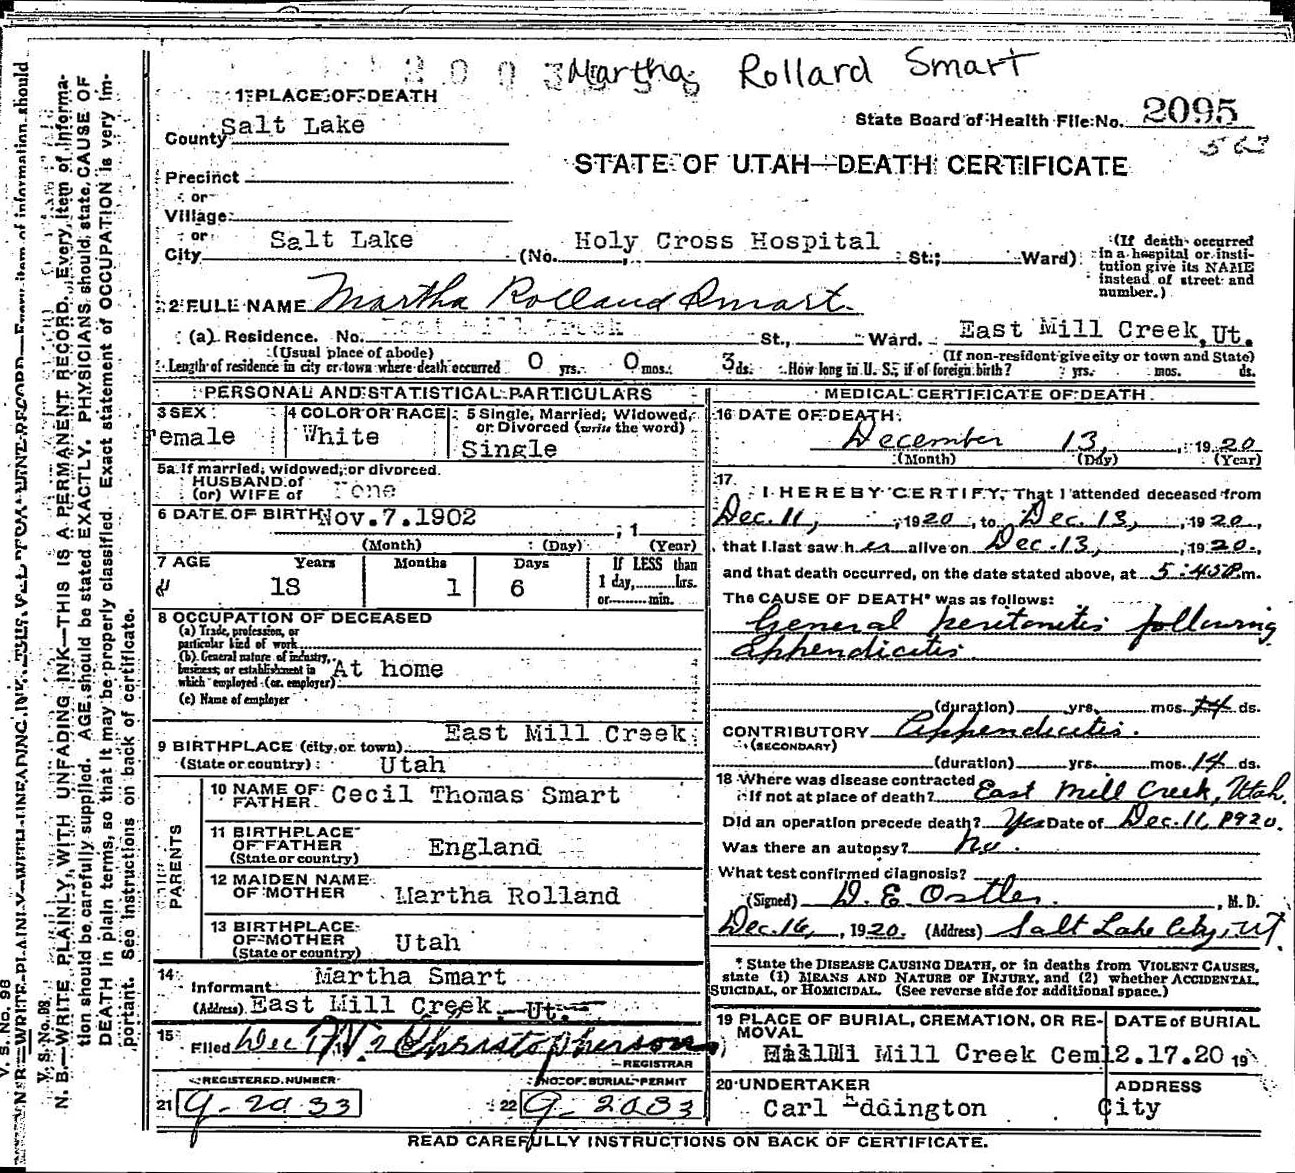 Martha Rollard Smart
1 PLACE OF DEATH
County Salt Lake
State Board of Health File No. 2095
STATE OF UTAH—DEATH CERTIFICATE
Precinct
or
Village
or
City Salt Lake (No. Holy Cross Hospital St.; Ward)
(If death occurred in a hospital or institution give its NAME instead of street and number.)
2 FULL NAME Martha Rolland Smart.
(a) Residence. No. East Mill Creek St., Ward. East Mill Creek, Ut.
(Usual place of abode) (If non-resident give city or town and State)
Length of residence in city or town where death occurred 0 yrs. 0 mos. 3 ds. How long in U. S., if of foreign birth? yrs. mos. ds.
PERSONAL AND STATISTICAL PARTICULARS
3 SEX Female
4 COLOR OR RACE White
5 Single, Married, Widowed, or Divorced (write the word) Single
5a If married, widowed, or divorced.
HUSBAND of
(or) WIFE of None
6 DATE OF BIRTH Nov.7.1902 , 1
(Month) (Day) (Year)
7 AGE Years Months Days If LESS than
18 1 6 1 day, hrs.
or min.
8 OCCUPATION OF DECEASED
(a) Trade, profession, or particular kind of work
(b) General nature of industry, business, or establishment in which employed (or employer) At home
(c) Name of employer
9 BIRTHPLACE (city or town) East Mill Creek
(State or country) Utah
PARENTS
10 NAME OF FATHER Cecil Thomas Smart
11 BIRTHPLACE OF FATHER (State or country) England
12 MAIDEN NAME OF MOTHER Martha Rolland
13 BIRTHPLACE OF MOTHER (State or country) Utah
14 Informant Martha Smart
(Address) East Mill Creek Ut.
15 Filed Dec Christopherson
REGISTRAR
REGISTERED NUMBER NO. OF BURIAL PERMIT
21 9-2033 22 9-2033
MEDICAL CERTIFICATE OF DEATH
16 DATE OF DEATH
December 13, 1920
(Month) (Day) (Year)
17
I HEREBY CERTIFY, That I attended deceased from
Dec. 11, 1920, to Dec. 13, 1920,
that I last saw her alive on Dec. 13, 1920,
and that death occurred, on the date stated above, at 5:45 P.m.
The CAUSE OF DEATH* was as follows:
General peritonitis following
appendicitis
(duration) yrs. mos. 14 ds.
CONTRIBUTORY Appendicitis.
(SECONDARY)
(duration) yrs. mos. 14 ds.
18 Where was disease contracted
if not at place of death? East Mill Creek, Utah.
Did an operation precede death? Yes Date of Dec. 11, 1920.
Was there an autopsy? No.
What test confirmed diagnosis?
(Signed) D. E. Ostler. , M. D.
Dec. 16, 1920. (Address) Salt Lake City, UT.
* State the DISEASE CAUSING DEATH, or in deaths from VIOLENT CAUSES,
state (1) MEANS AND NATURE OF INJURY, and (2) whether ACCIDENTAL,
SUICIDAL, or HOMICIDAL. (See reverse side for additional space.)
19 PLACE OF BURIAL, CREMATION, OR REMOVAL DATE of BURIAL
Mill Creek Cem 12.17.20 19
20 UNDERTAKER ADDRESS
Carl Eddington City
READ CAREFULLY INSTRUCTIONS ON BACK OF CERTIFICATE.
V. S. No. 98
N. B.—WRITE PLAINLY, WITH UNFADING INK—THIS IS A PERMANENT RECORD. Every item of information should be carefully supplied. AGE should be stated EXACTLY. PHYSICIANS should state CAUSE OF DEATH in plain terms, so that it may be properly classified. Exact statement of OCCUPATION is very important. See instructions on back of certificate.